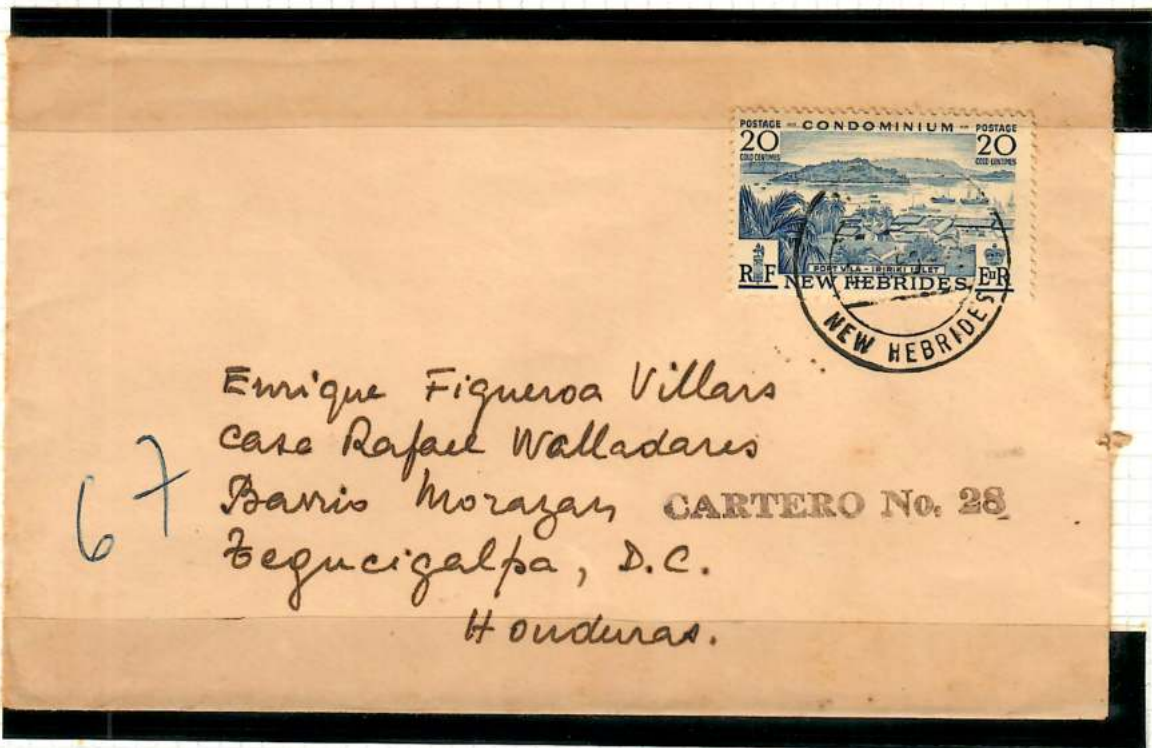 POSTAGE - CONDOMINIUM - POSTAGE
20 20
GOLD CENTIMES GOLD CENTIMES
PORT VILA - IRIRIKI ISLET
RF NEW HEBRIDES EIIR
NEW HEBRIDES
Enrique Figueroa Villars
Casa Rafael Walladares
Barrio Morazan CARTERO No. 28
67
Tegucigalpa, D.C.
Honduras.